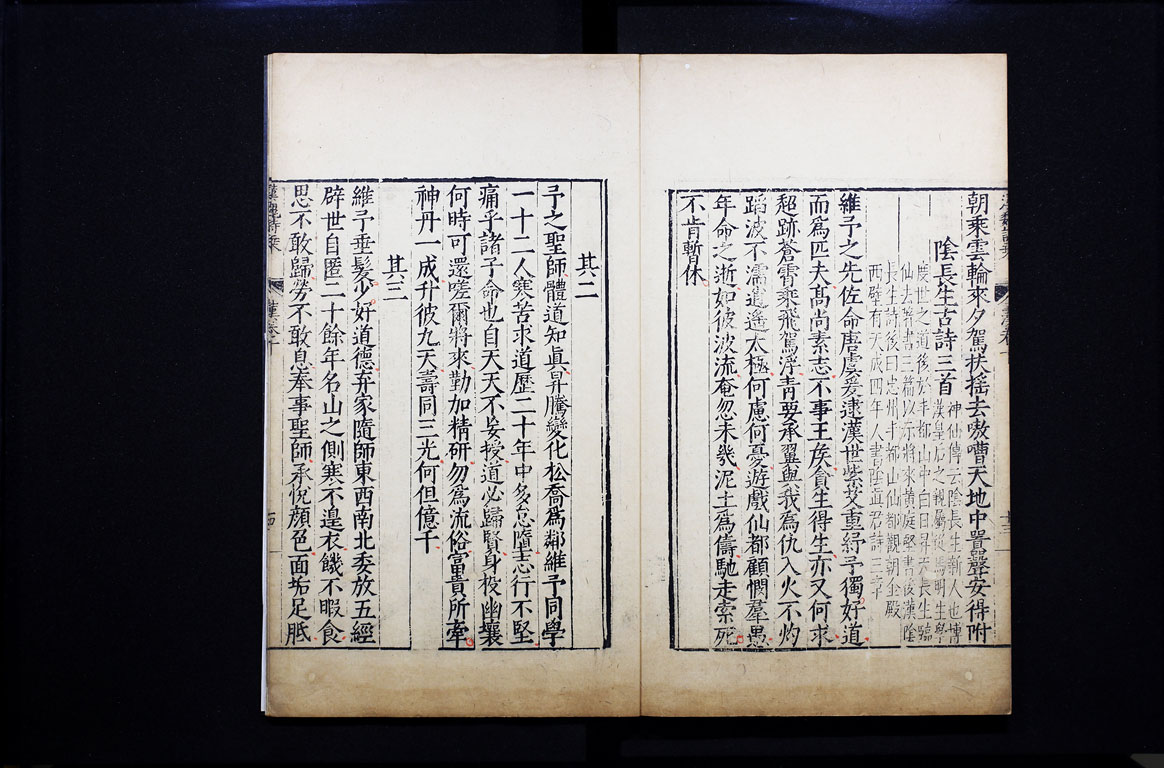 朝乘雲輪來夕駕扶搖去嗷嘈天地中囂聲安得附
陰長生古詩三首
神仙傳云陰長生新人也博
漢皇后之親屬從馬明生學
度世之道後於丰都山中白日昇天長生臨
仙去著書三篇以示將來黃庭堅書後漢陰
長生詩後曰忠州丰都山仙都觀朝金殿
西壁有天成四年人書陰真君詩三章
維予之先佐命唐虞爰逮漢世紫艾重紆予獨好道
而為匹夫高尚素志不事王矦貪生得生亦又何求
超跡蒼霄乘飛駕浮青要承翼與我為仇入火不灼
蹈波不濡逍遙太極何慮何憂遊戲仙都顧憫羣愚
年命之逝如彼波流奄忽未幾泥土為儔馳走索死
不肯暫休
其二
予之聖師體道知眞昇騰變化松喬為鄰維予同學
一十二人寒苦求道歷二十年中多怠墮志行不堅
痛乎諸子命也自天天不妄授道必歸賢身投幽壤
何時可還嗟爾將來勤加精研勿為流俗富貴所牽
神丹一成升彼九天壽同三光何但億千
其三
維予垂髮少好道德弃家隨師東西南北委放五經
辟世自匿二十餘年名山之側寒不遑衣饑不暇食
思不敢歸勞不敢息奉事聖師承悅顏色面垢足胝